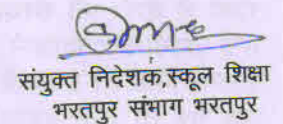 संयुक्त निदेशक,स्कूल शिक्षा
भरतपुर संभाग भरतपुर